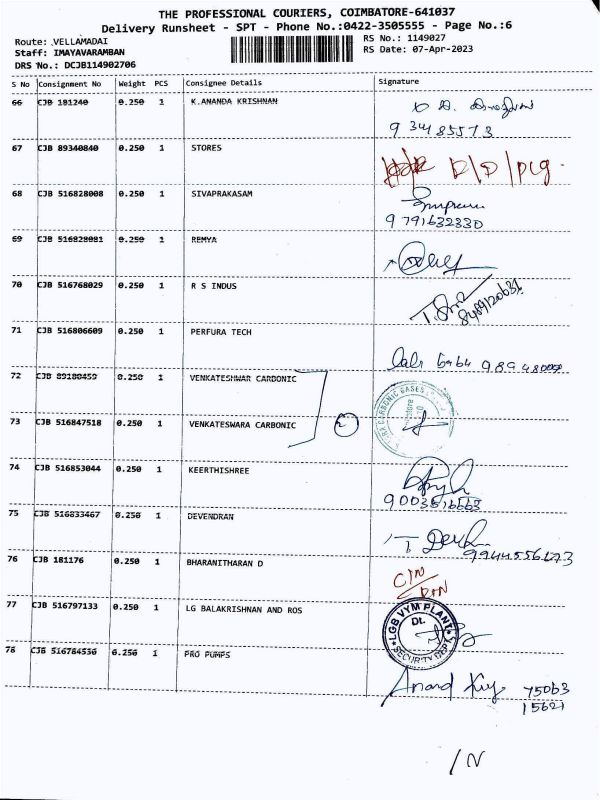 THE PROFESSIONAL COURIERS, COIMBATORE-641037
Delivery Runsheet - SPT - Phone No.:0422-3505555 - Page No.:6
Route: VELLAMADAI
RS No.: 1149027
Staff: IMAYAVARAMBAN
RS Date: 07-Apr-2023
DRS No.: DCJB114902706
S No Consignment No Weight PCS Consignee Details Signature
66 CJB 181240 0.250 1 K.ANANDA KRISHNAN
67 CJB 89340840 0.250 1 STORES
D/D/pcg.
68 CJB 516828008 0.250 1 SIVAPRAKASAM
9791632330
69 CJB 516828081 0.250 1 REMYA
70 CJB 516768029 0.250 1 R S INDUS
8489120631
71 CJB 516806609 0.250 1 PERFURA TECH
72 CJB 89180459 0.250 1 VENKATESHWAR CARBONIC
73 CJB 516847518 0.250 1 VENKATESWARA CARBONIC
2
CARBONIC GASES
74 CJB 516853044 0.250 1 KEERTHISHREE
75 CJB 516833467 0.250 1 DEVENDRAN
76 CJB 181176 0.250 1 BHARANITHARAN D
77 CJB 516797133 0.250 1 LG BALAKRISHNAN AND ROS
LGB VYM PLANT
Dt.
SECURITY DEPT
78 CJB 516784536 0.250 1 PRO PUMPS
Anand
75063
15621
/ N